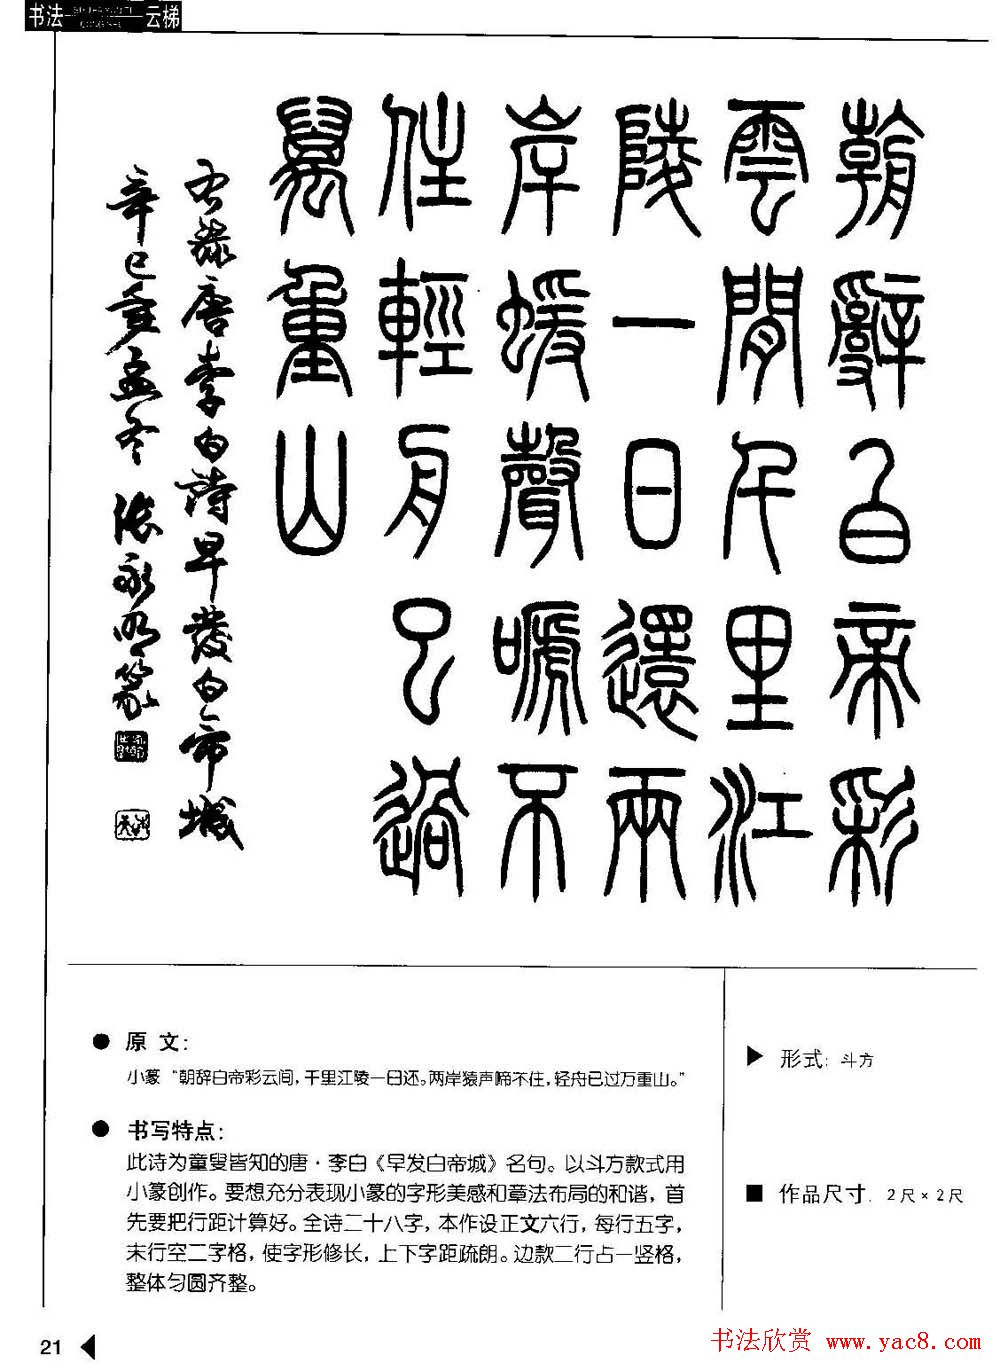 书法
云梯
朝辭白帝彩
雲閒千里江
陵一日還兩
岸蝯聲嗁不
住輕舟已過
萬重山
右录唐李白詩早發白帝城
辛巳年孟冬張永明篆
● 原 文：
小篆“朝辞白帝彩云间，千里江陵一日还。两岸猿声啼不住，轻舟已过万重山。”
● 书写特点：
此诗为童叟皆知的唐·李白《早发白帝城》名句。以斗方款式用
小篆创作。要想充分表现小篆的字形美感和章法布局的和谐，首
先要把行距计算好。全诗二十八字，本作设正文六行，每行五字，
末行空二字格，使字形修长，上下字距疏朗。边款二行占一竖格，
整体匀圆齐整。
▶ 形式：斗方
■ 作品尺寸：2尺×2尺
21
书法欣赏 www.yac8.com